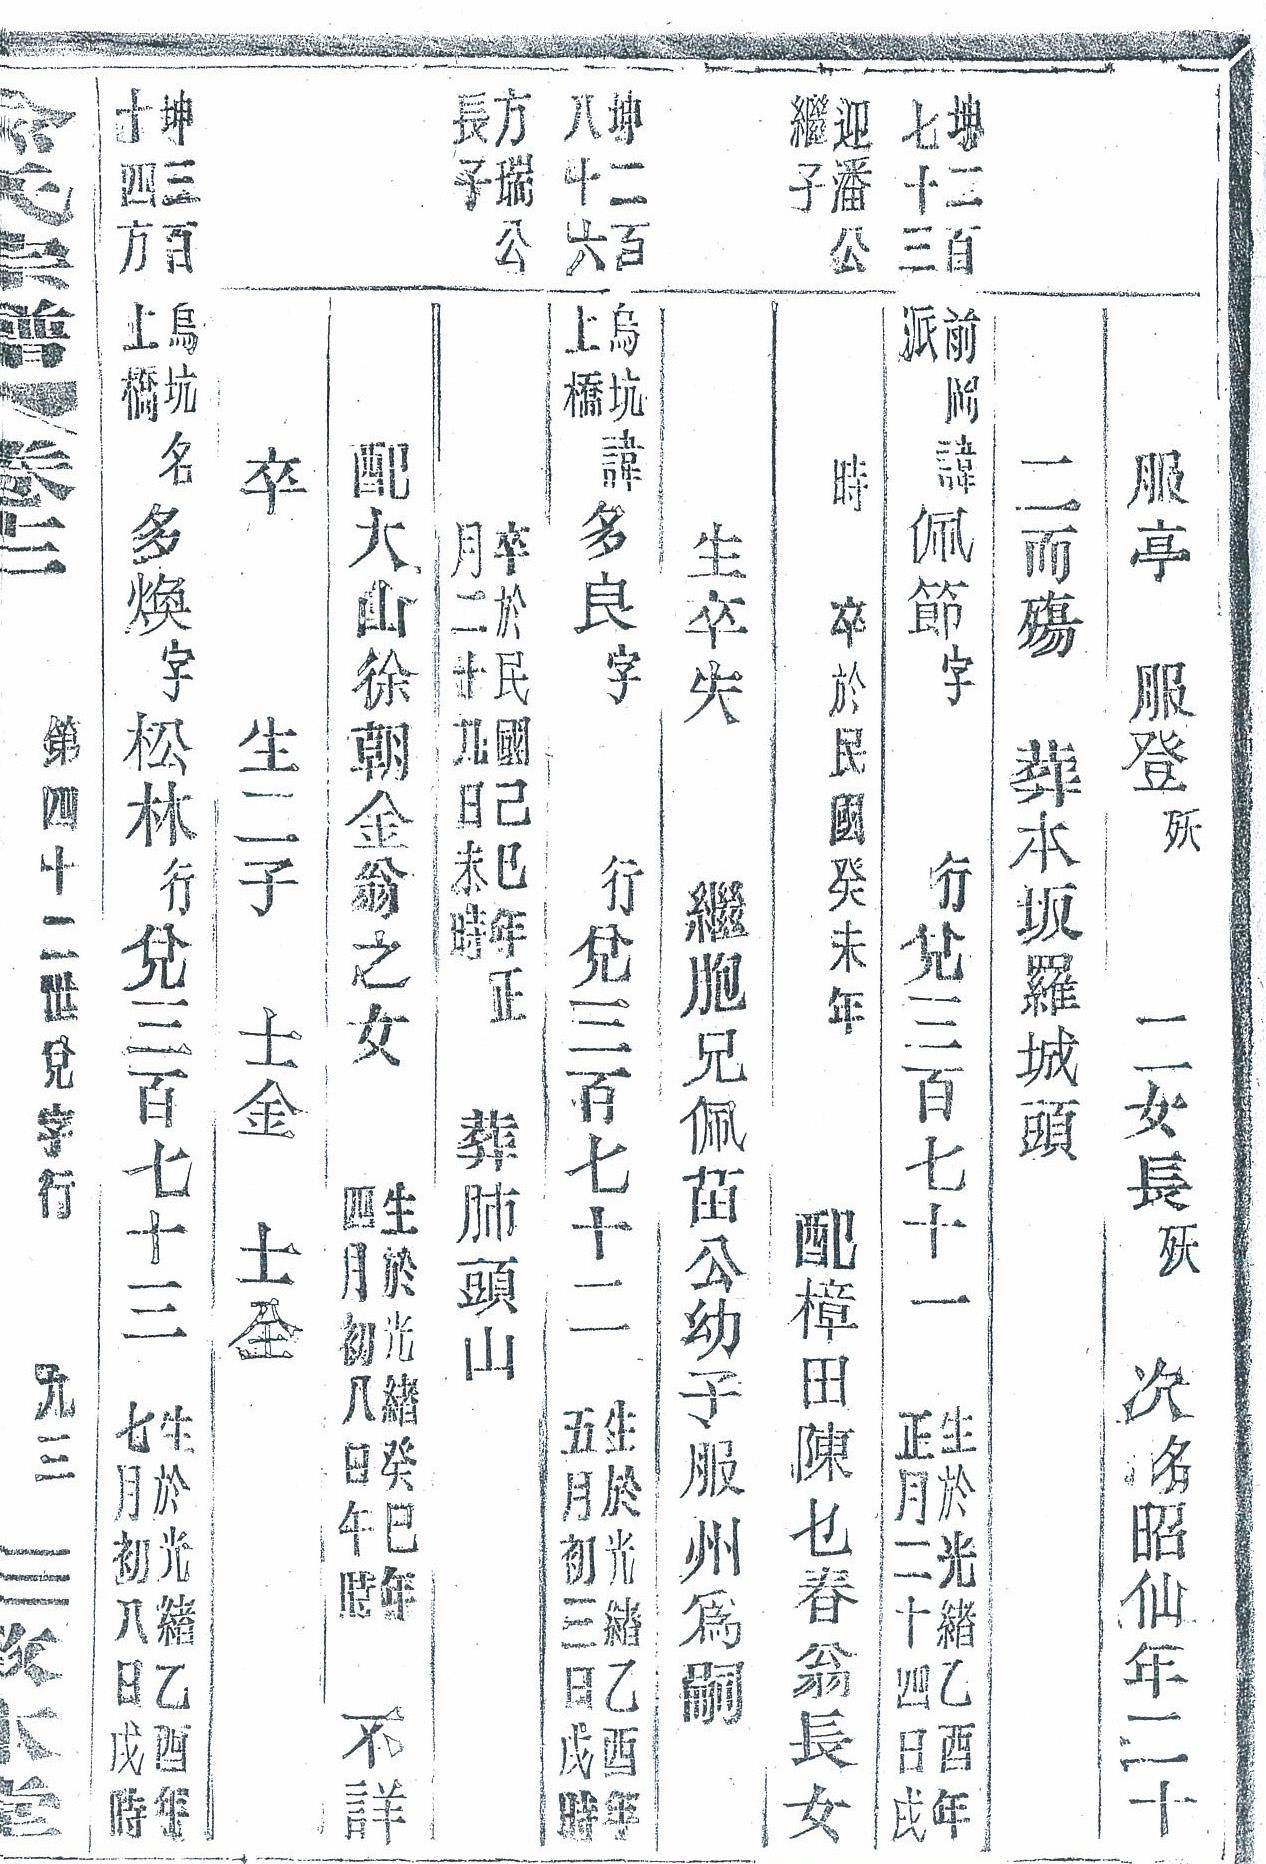 服亭 服登 殀 二女長 殀 次名昭仙年二十
二而殤 葬本坂羅城頭
坤二百
七十三
前岡
派
諱佩節字 行兌三百七十一
生於光緒乙酉年
正月二十四日戌
時 卒於民國癸未年 配樟田陳乜春翁長女
迎潘公
繼子
生卒失 繼胞兄佩苗公幼子服州為嗣
坤二百
八十六
烏坑
上橋
諱多良字 行兌三百七十二
生於光緒乙酉年
五月初三日戌時
卒於民國己巳年正
月二十九日未時
葬肺頭山
方瑞公
長子
配大山徐朝金翁之女
生於光緒癸巳年
四月初八日午時
不詳
卒 生二子 士金 士全
坤三百
十四方
烏坑
上橋
名多煥字松林行兌三百七十三
生於光緒乙酉年
七月初八日戌時
氏宗譜 卷十二 第四十二世兌字行 九三